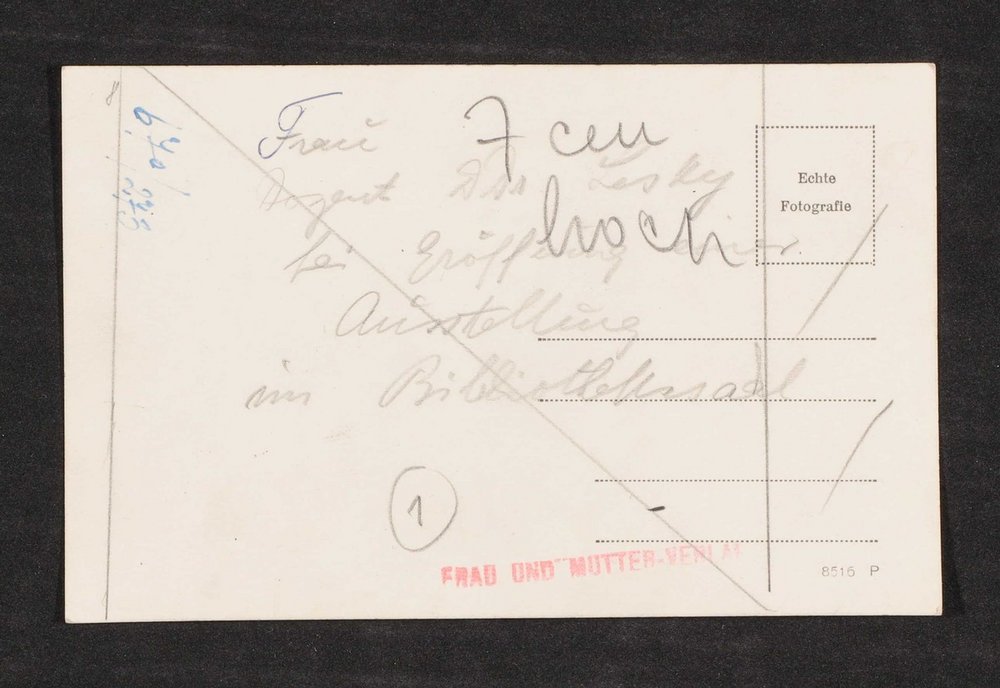 Frau
Dozent Dr. Lesky
bei Eröffnung einer
Ausstellung
im Bibliothekssaal
7 cm
hoch
Echte
Fotografie
1
FRAU UND MUTTER-VERLAG
8516 P